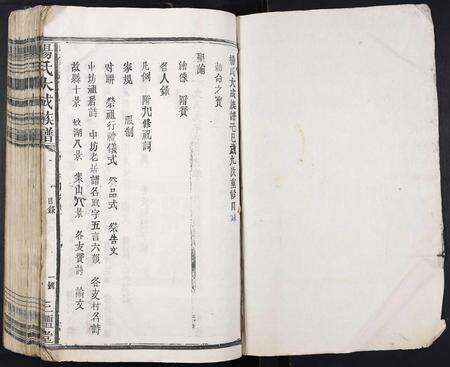 楊氏大成族譜七巳歲九次重修目錄
勅命之寶
聖諭
繪像 附贊
名人錄
凡例 附九修祖詞
家規 服制
對聯 祭祖行禮儀式 祭品式 祭告文
中坊祖居詩 中坊老居譜名取字五言六韻 各支村名詩
故縣十景 八景 景山八景 各支贊詩 論文
楊氏大成族譜
目錄
一